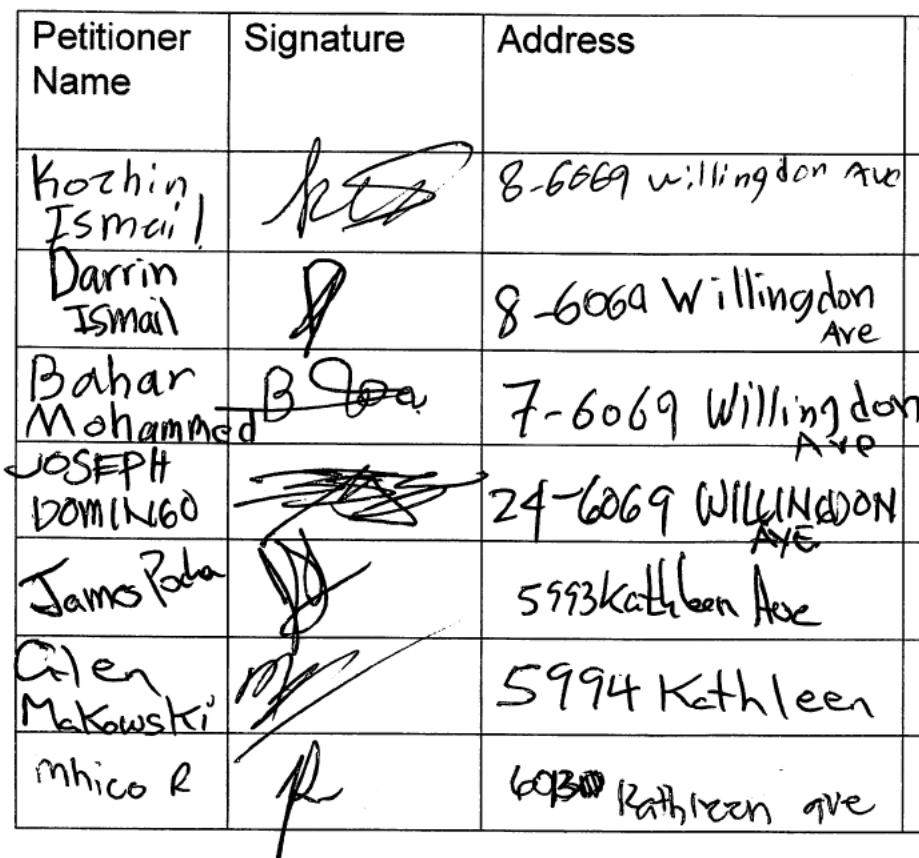 Petitioner Name Signature Address
Kozhin Ismail 8-6069 Willingdon Ave
Darrin Ismail 8-6069 Willingdon Ave
Bahar Mohammed B 7-6069 Willingdon Ave
JOSEPH DOMINGO 24-6069 WILLINGDON AVE
James 5993 Kathleen Ave
Glen Makowski 5994 Kathleen
Mhico R Kathleen ave